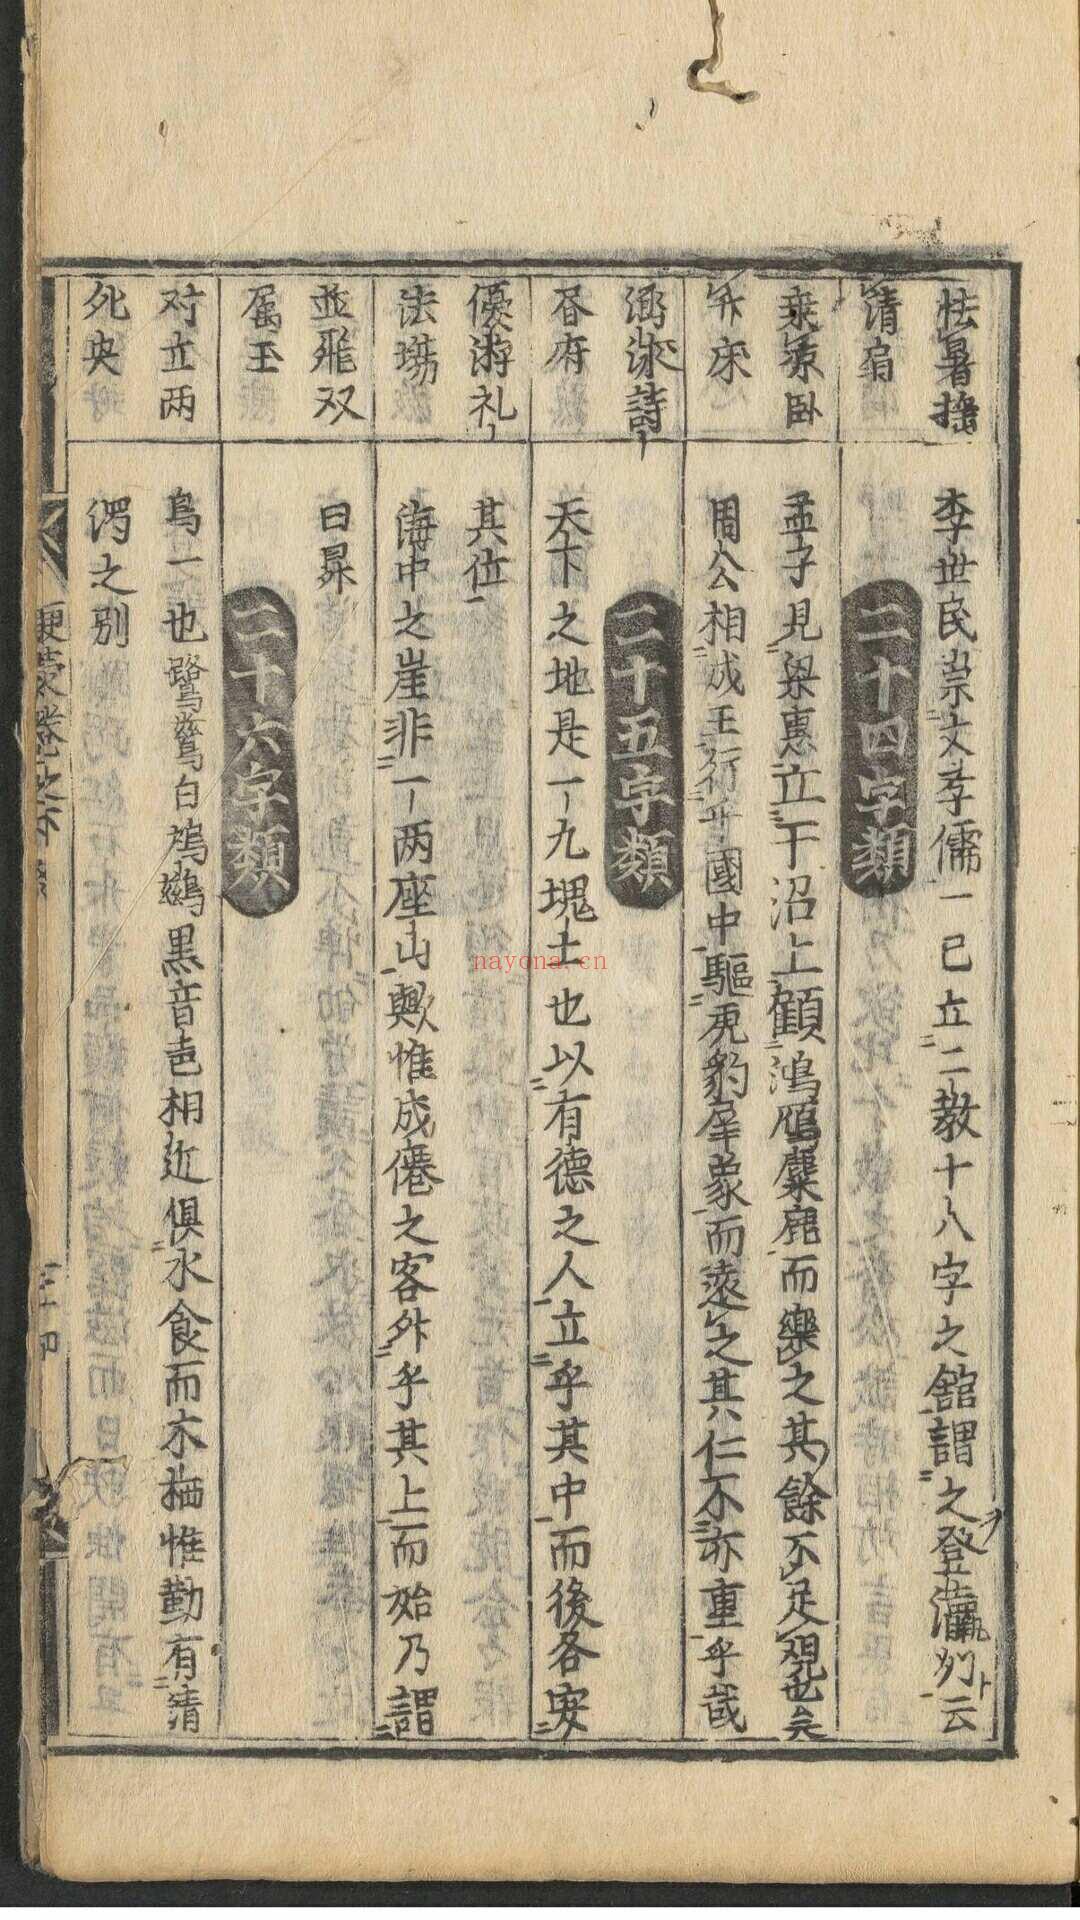 怯暑揺
清肩
乗涼臥
竹床
涵泳詩
唇府
優游礼
法場
並飛双
属玉
对立两
死央
李世民崇文孝儒一已立二教十八字之舘謂之登瀛列云
二十四字類
孟子見梁惠立于沼上顧鴻鴈麋鹿而樂之其餘不足覌也矣
周公相成王行乎國中驅虎豹犀象而遠之其仁不亦重乎哉
二十五字類
天下之地是一九塊土也以有德之人立乎其中而後各安
其位
海中之崖非一两座山歟惟成僊之客外乎其上而始乃謂
曰昇
二十六字類
烏一也鷺鷥白鸕鷀黒音色相近俱水食而木栖惟勤有清
濁之別
nayona.cn